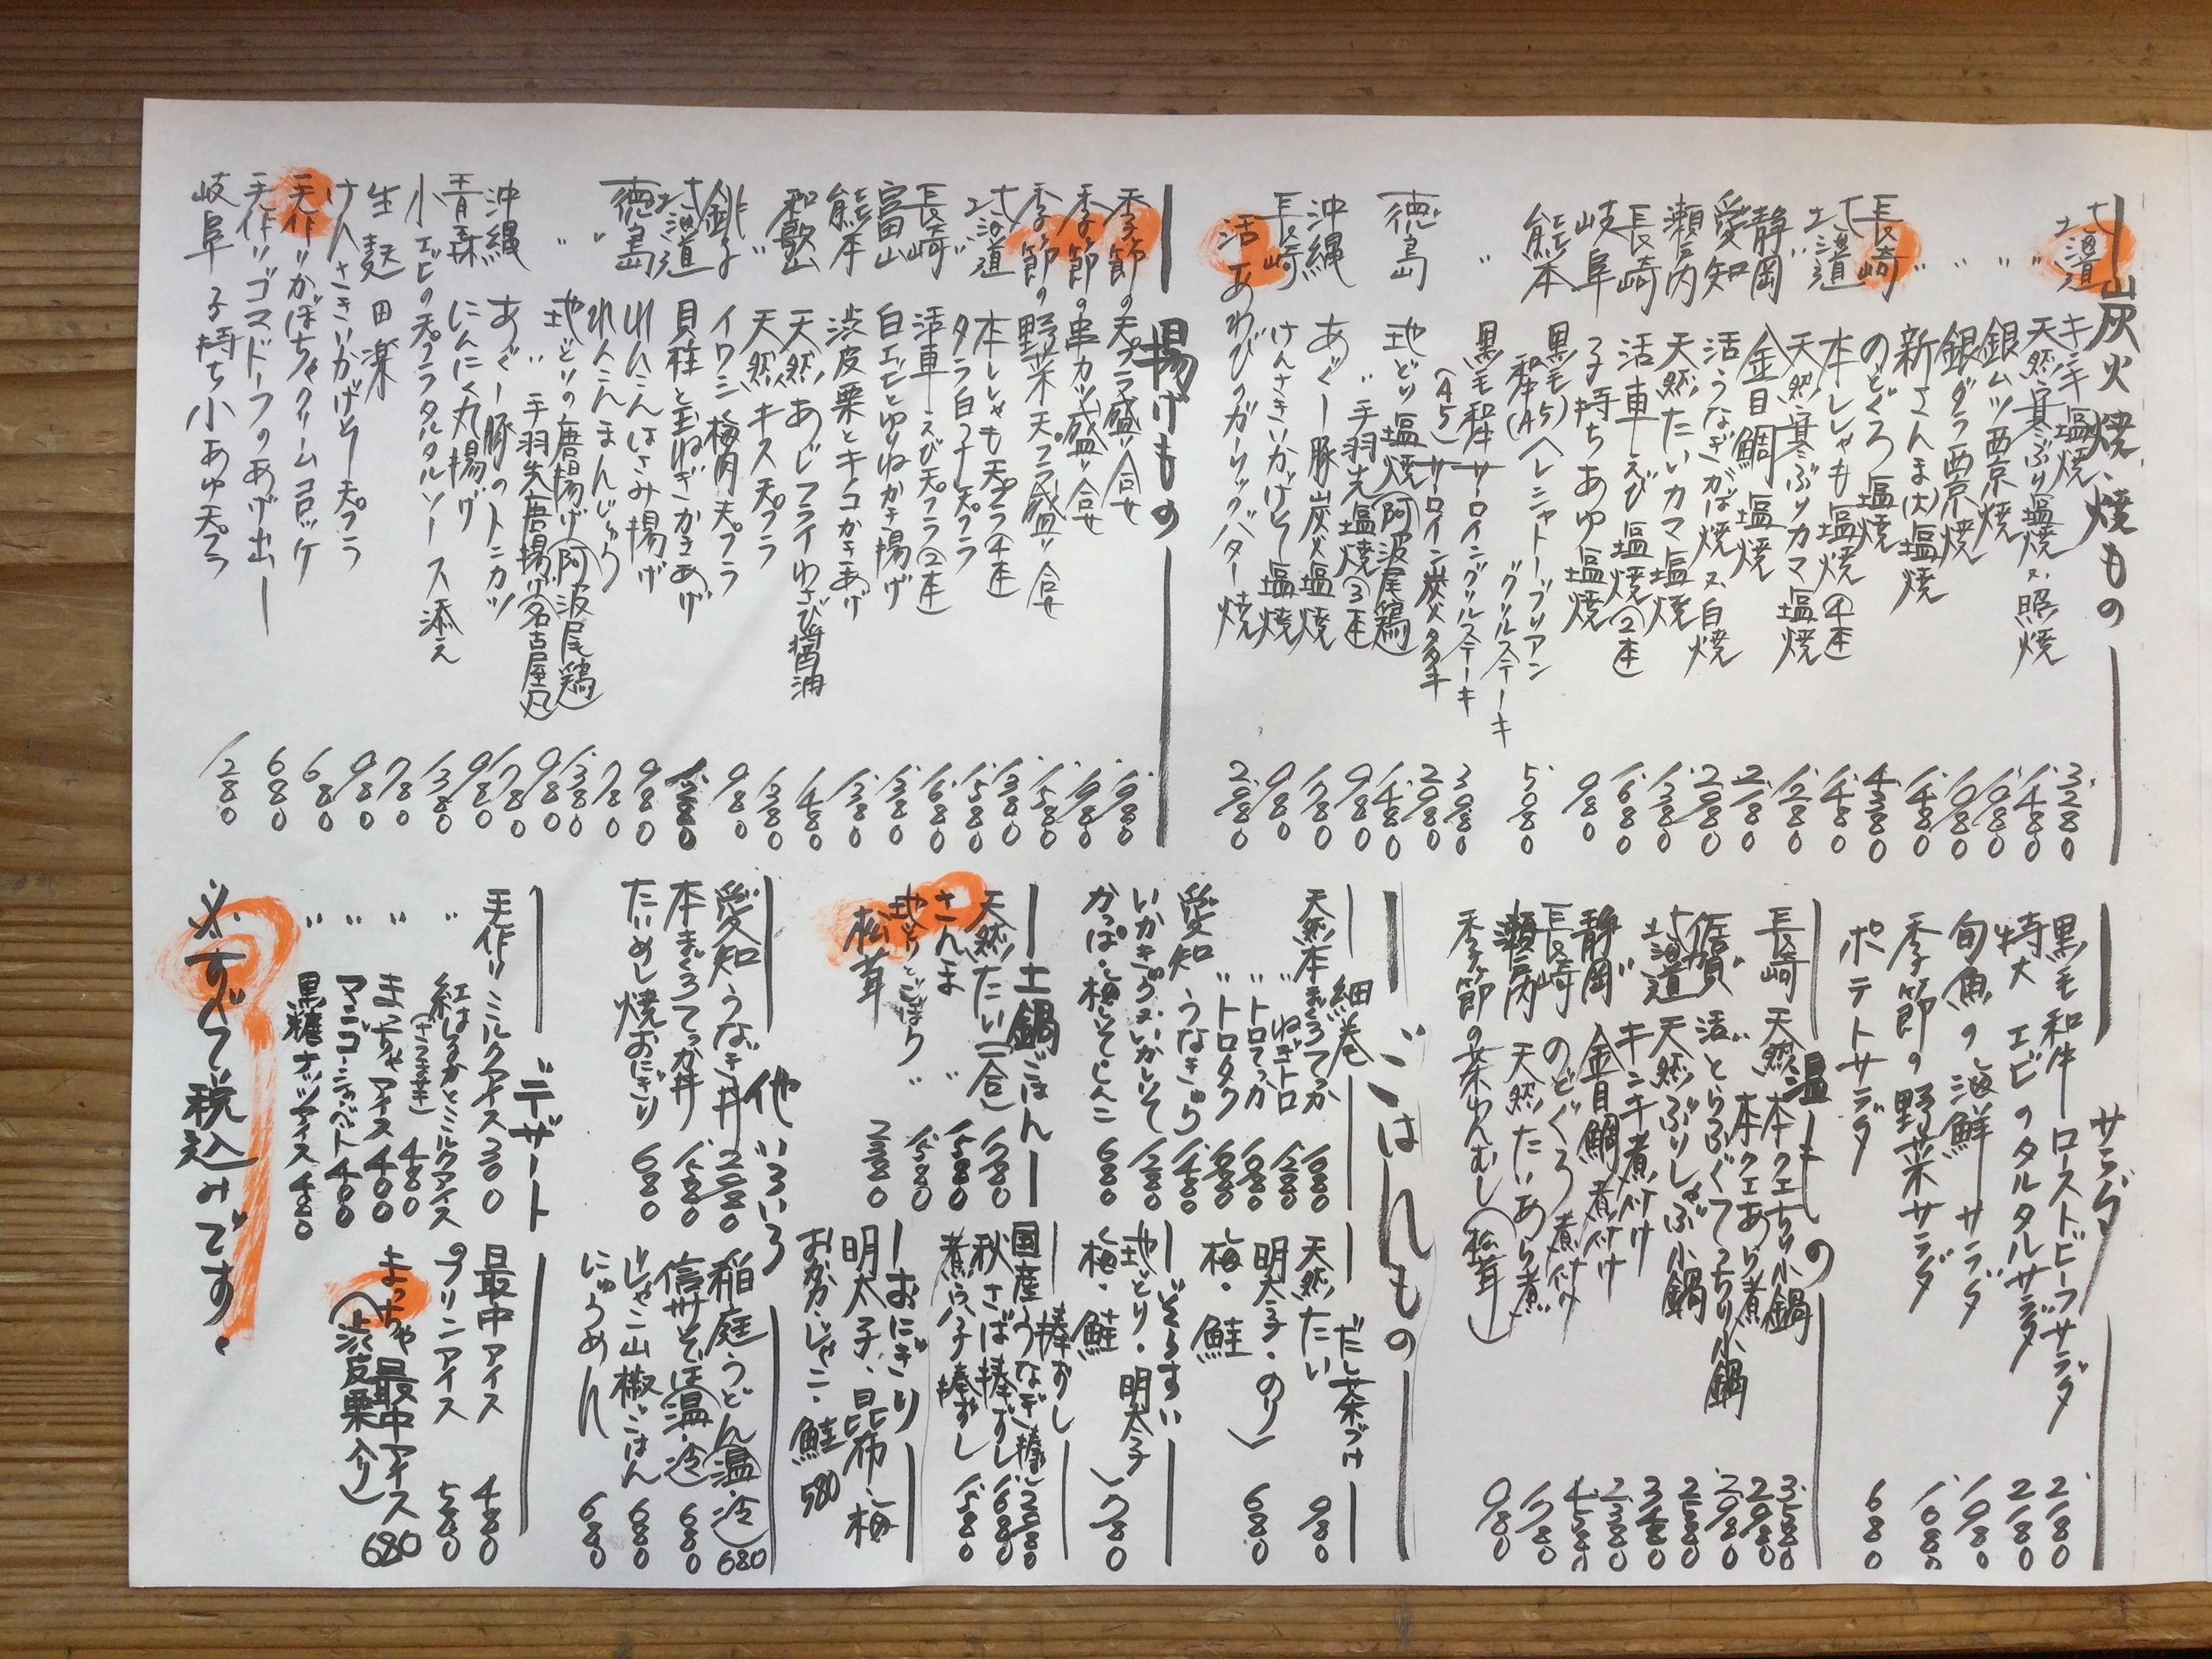 炭火焼、焼もの
北海道 キンキ塩焼 3280
〃 天然寒ぶり塩焼又照焼 1.480
〃 銀ムツ西京焼 1.980
〃 銀ダラ西京焼 1.980
〃 新さんま(大)塩焼 1.480
長崎 のどぐろ塩焼 4.380
北海道 本ししゃも塩焼④本 1.480
〃 天然寒ぶりカマ塩焼 1.280
静岡 金目鯛塩焼 2.180
愛知 活うなぎかば焼又白焼 2980
瀬戸内 天然たいカマ塩焼 1.380
長崎 活車えび塩焼②本 1.680
岐阜 子持ちあゆ塩焼 980
熊本 黒毛和牛(A5)ヘレシャトーブリアングリルステーキ 5.080
〃 黒毛和牛サーロイングリルステーキ 3080
(A5)サーロイン炭火タタキ 2.980
徳島 地どり塩焼(阿波尾鶏) 1.480
〃 手羽先塩焼③本 980
沖縄 あぐー豚炭火塩焼 1.780
長崎 けんさきいかげそ塩焼 980
活あわびのガーリックバター焼 2.980
揚げもの
季節の天プラ盛り合せ 1.980
季節の串カツ盛り合せ 1.980
季節の野菜天プラ盛り合せ 1.580
北海道 本ししゃも天プラ④本 1.380
〃 タラ白子天プラ 1.580
長崎 活車えび天プラ②本 1.680
富山 白エビとゆりねかき揚げ 1.380
熊本 渋皮栗とキノコかきあげ 1.380
和歌山 天然あじフライわさび醤油 1.480
〃 天然キス天プラ 1.380
銚子 イワシ梅肉天プラ 980
北海道 貝柱と玉ねぎかきあげ 1.380
徳島 れんこんはさみ揚げ 980
〃 れんこんまんじゅう 780
〃 地どりの唐揚げ(阿波尾鶏) 1.380
〃 手羽先唐揚げ(名古屋風) 980
沖縄 あぐー豚のトンカツ 1.780
青森 にんにく丸揚げ 980
小エビの天プラタルタルソース添え 1.380
生麩田楽 780
けんさきいかげそ天プラ 980
手作りかぼちゃクリームコロッケ 680
手作りゴマドーフのあげ出し 680
岐阜 子持ち小あゆ天プラ 1.280
サラダ
黒毛和牛ローストビーフサラダ 2.180
特大エビのタルタルサラダ 2.180
旬魚の海鮮サラダ 1.980
季節の野菜サラダ 1.080
ポテトサラダ 680
温もの
長崎 天然本クエちり小鍋 3.580
〃 本クエあら煮 2.980
佐賀 活とらふぐてっちり小鍋 2.980
〃 天然ぶりしゃぶ小鍋 2.580
北海道 キンキ煮付け 3.480
静岡 金目鯛煮付け 2.380
長崎 のどぐろ煮付け 4.580
瀬戸内 天然たいあら煮 1.780
季節の茶わんむし(松茸) 980
ごはんもの
細巻
天然本まぐろてっか 1.080
〃 ねぎトロ 1.280
〃 トロてっか
〃 トロタク
愛知 うなきゅう 1.480
いかきゅう又いかしそ 1.280
かっぱ・梅しそ・しんこ 680
だし茶づけ
天然たい 980
明太子・のり
梅・鮭 680
ぞうすい
地どり・明太子
梅・鮭 780
土鍋ごはん
天然たい(二合)
さんま 〃 1.580
地どりとごぼう 1.580
松茸 〃 2.380
棒ずし
国産うなぎ棒ずし 2.980
秋さば棒ずし 1.680
煮穴子棒ずし 1.580
おにぎり
明太子、昆布、梅
おかか・じゃこ・鮭 580
他いろいろ
愛知うなぎ丼 2.980
本まぐろてっか丼 1.580
たいめし焼おにぎり 680
稲庭うどん(温・冷) 680
信州そば(温・冷) 680
じゃこ山椒ごはん 680
にゅうめん 680
デザート
手作りミルクアイス 300
〃 紅はるかとミルクアイス(さつま芋) 480
〃 まっちゃアイス 400
〃 マンゴーシャーベット 400
〃 黒糖ナッツアイス 480
最中アイス 480
プリンアイス 580
まっちゃ最中アイス 680
(渋皮栗入り)
※すべて税込みです。